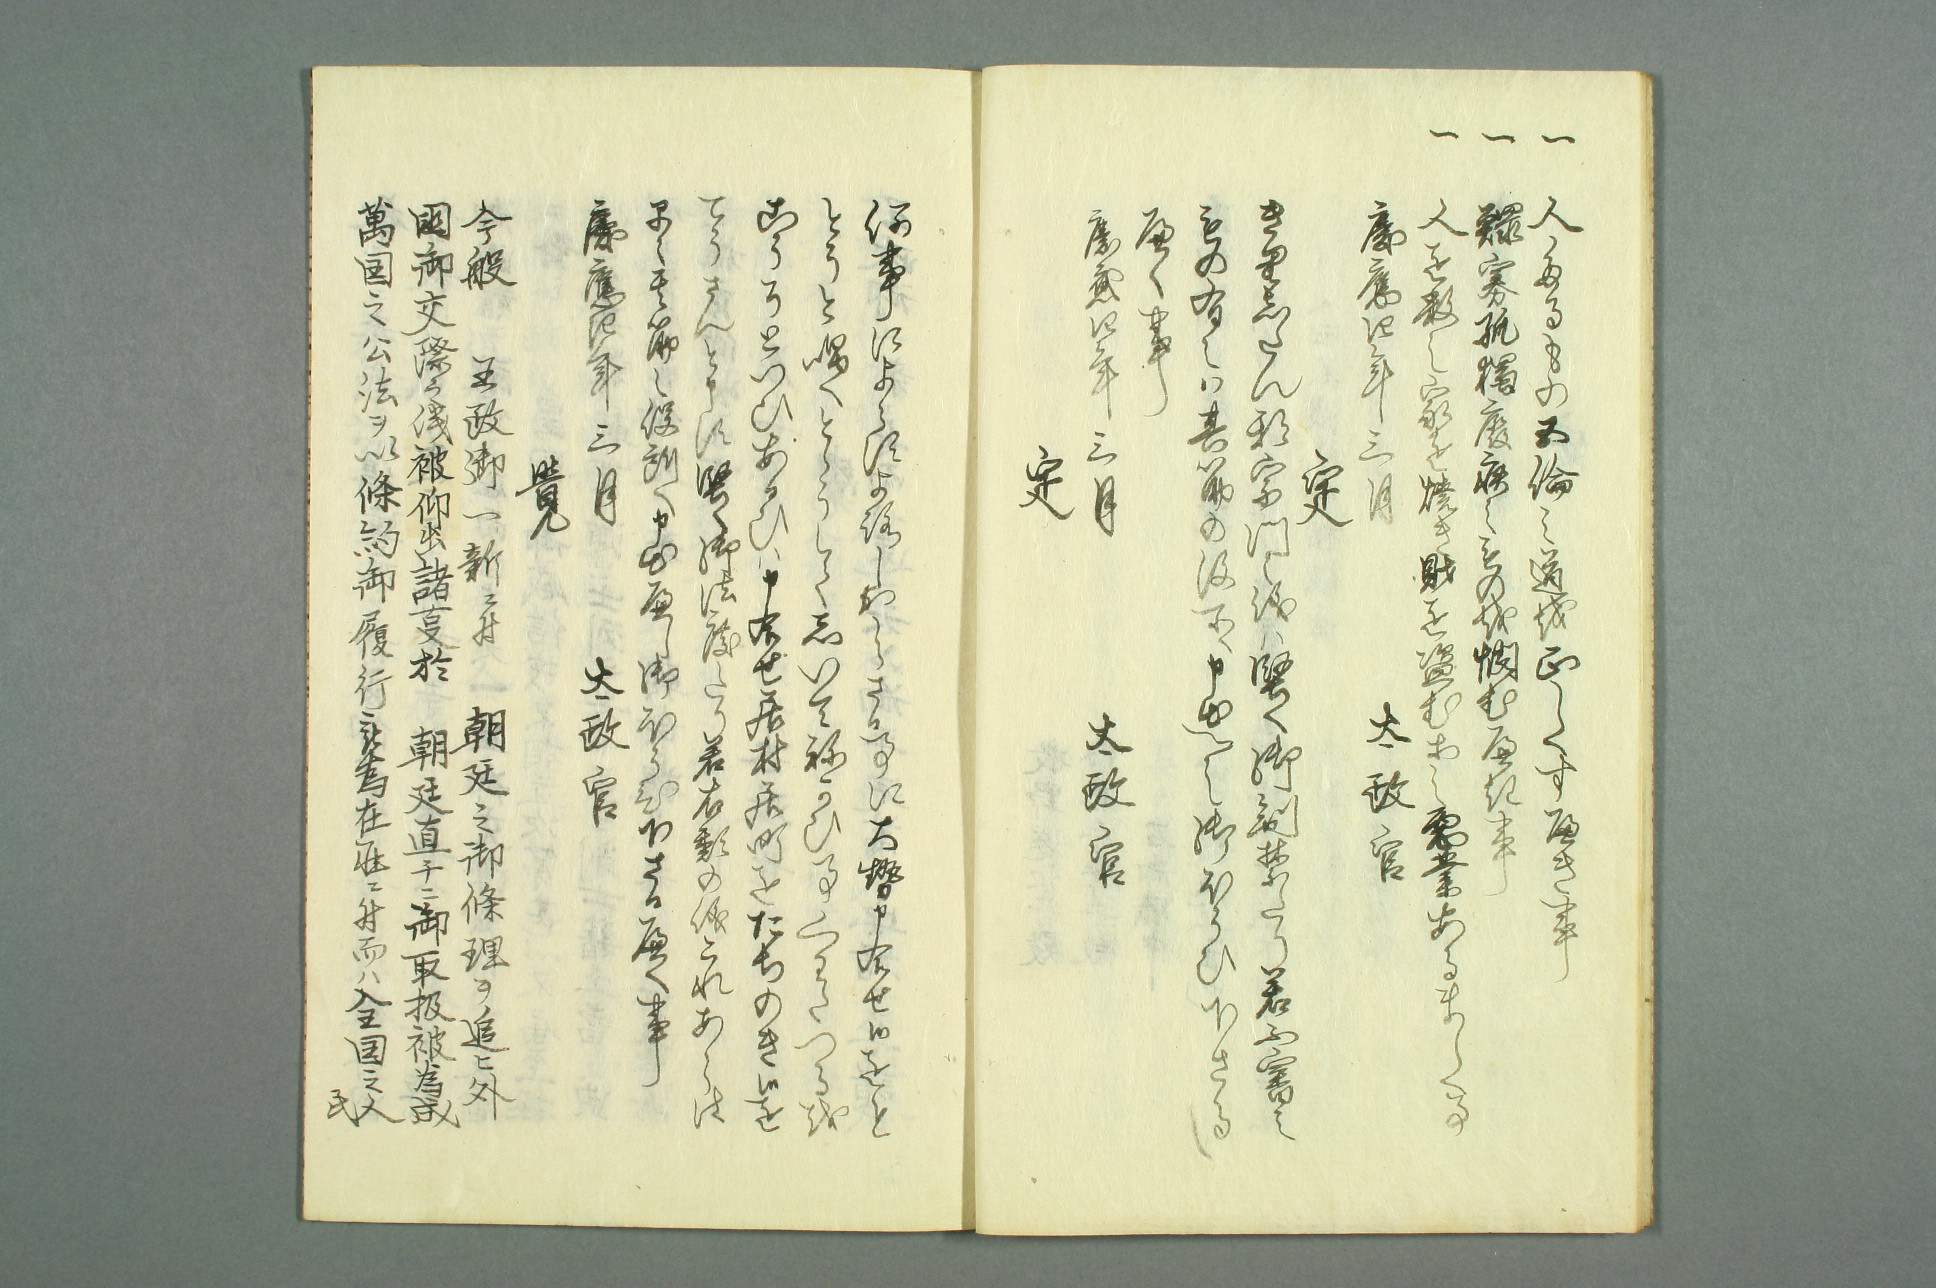 一 人たるもの五倫之道越正しくす遍き事
一 鰥寡孤獨廃疾之もの越憫む遍起事
一 人を殺し家を焼き財を盗む等之悪業あるましく事
慶應四年三月 太政官
定
きりしたん邪宗門之儀ハ堅く御制禁たり若不審之
もの有之ハ其筋の役所へ申出へし御ほうひ下さる
遍く事
慶應四年三月 太政官
定
何事によらす よろしからさる事に大勢申合せ候をと
とうと唱へとゝうしてしいてねかひ事くわたつる越
こうそといひあるひハ申合せ居村居町をたちのき候を
てうさんと申す堅く御法度たり若右類の儀これあらは
早々其筋之役所へ申出遍し御ほうひ下さる遍く事
慶應四年三月 太政官
覺
今般 王政御一新ニ付 朝廷之御條理ヲ追ヒ外
國御交際之儀被仰出諸事於 朝廷直チニ御取扱被為成
萬国之公法ヲ以條約御履行被為在候ニ付而ハ全国之人
民